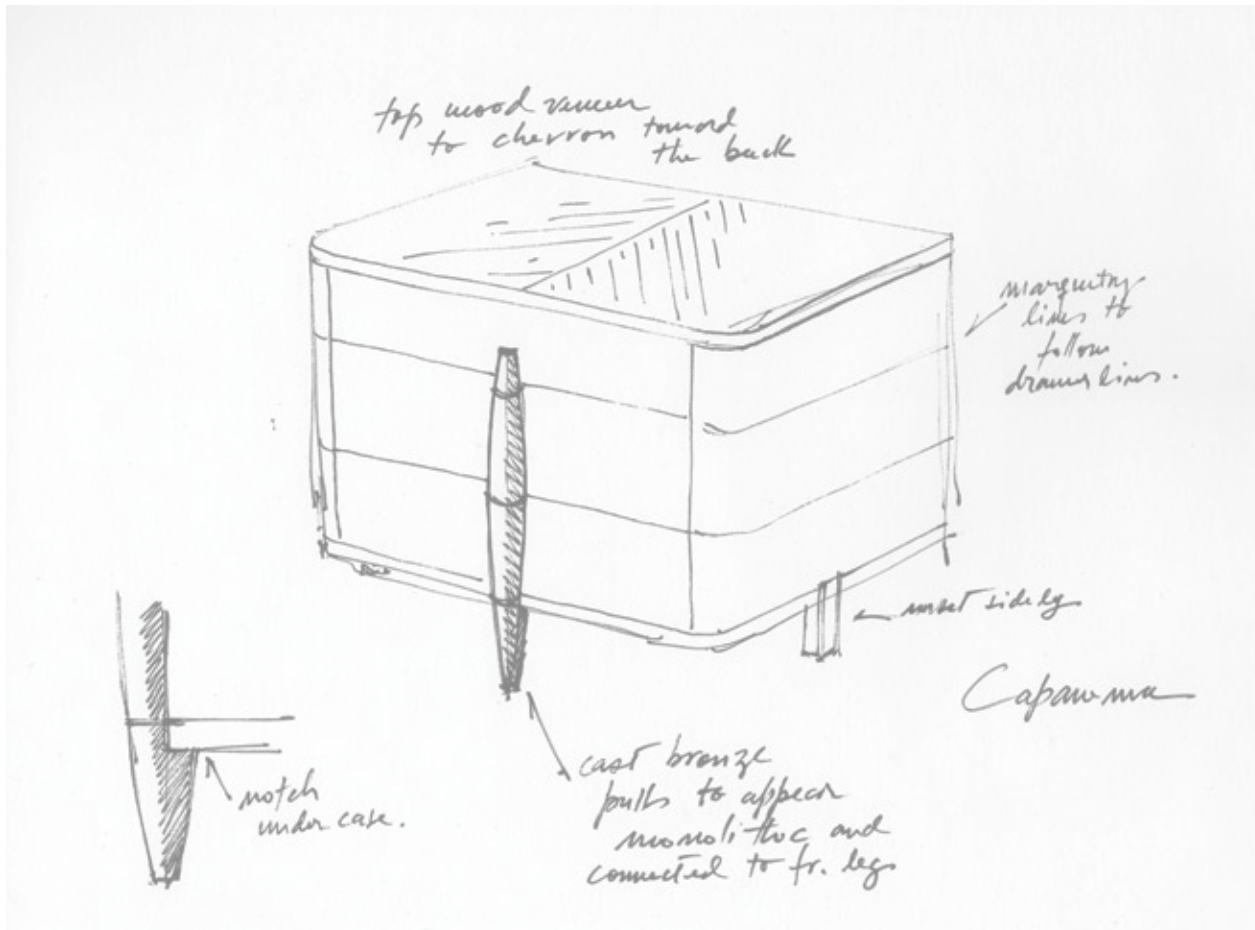 top wood veneer
to chevron toward
the back
marquetry
lines to
follow
drawer lines.
inset side leg
Capanema
cast bronze
pulls to appear
monolithc and
connected to fr. legs
notch
under case.